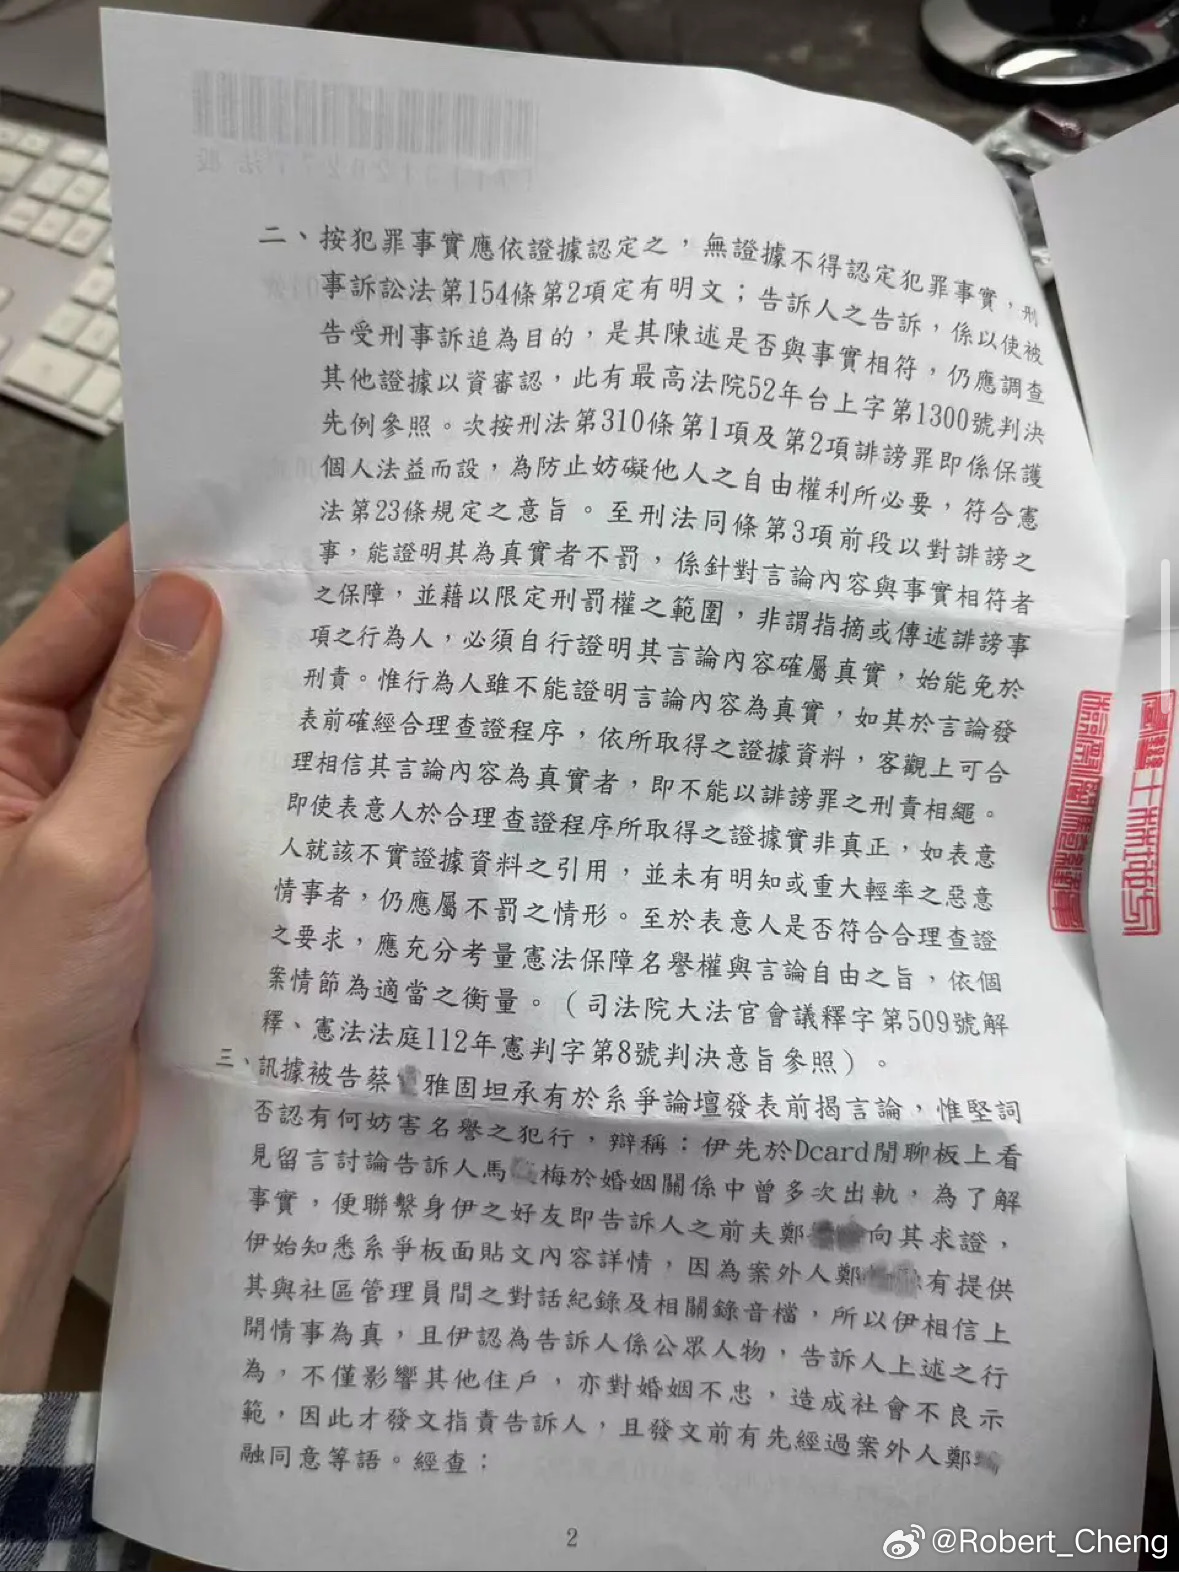 二、按犯罪事實應依證據認定之，無證據不得認定犯罪事實，刑
事訴訟法第154條第2項定有明文；告訴人之告訴，係以使被
告受刑事訴追為目的，是其陳述是否與事實相符，仍應調查
其他證據以資審認，此有最高法院52年台上字第1300號判決
先例參照。次按刑法第310條第1項及第2項誹謗罪即係保護
個人法益而設，為防止妨礙他人之自由權利所必要，符合憲
法第23條規定之意旨。至刑法同條第3項前段以對誹謗之
事，能證明其為真實者不罰，係針對言論內容與事實相符者
之保障，並藉以限定刑罰權之範圍，非謂指摘或傳述誹謗事
項之行為人，必須自行證明其言論內容確屬真實，始能免於
刑責。惟行為人雖不能證明言論內容為真實，如其於言論發
表前確經合理查證程序，依所取得之證據資料，客觀上可合
理相信其言論內容為真實者，即不能以誹謗罪之刑責相繩。
即使表意人於合理查證程序所取得之證據實非真正，如表意
人就該不實證據資料之引用，並未有明知或重大輕率之惡意
情事者，仍應屬不罰之情形。至於表意人是否符合合理查證
之要求，應充分考量憲法保障名譽權與言論自由之旨，依個
案情節為適當之衡量。（司法院大法官會議釋字第509號解
釋、憲法法庭112年憲判字第8號判決意旨參照）。
三、訊據被告蔡雅固坦承有於系爭論壇發表前揭言論，惟堅詞
否認有何妨害名譽之犯行，辯稱：伊先於Dcard閒聊板上看
見留言討論告訴人馬梅於婚姻關係中曾多次出軌，為了解
事實，便聯繫身伊之好友即告訴人之前夫鄭向其求證，
伊始知悉系爭板面貼文內容詳情，因為案外人鄭有提供
其與社區管理員間之對話紀錄及相關錄音檔，所以伊相信上
開情事為真，且伊認為告訴人係公眾人物，告訴人上述之行
為，不僅影響其他住戶，亦對婚姻不忠，造成社會不良示
範，因此才發文指責告訴人，且發文前有先經過案外人鄭
融同意等語。經查：
2
@Robert_Cheng